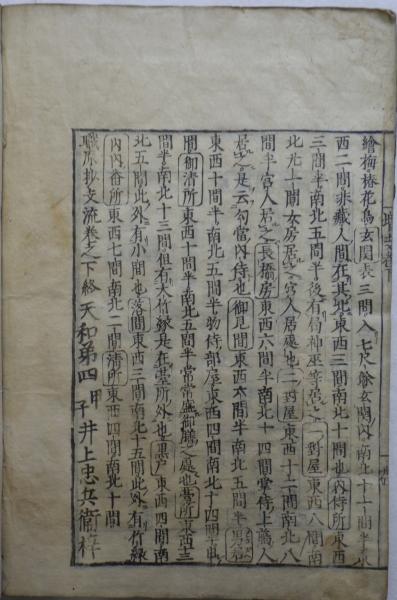 繪梅椿花鳥玄関表三間入七尺餘玄関内南北十一間半東
西二間非藏人間在其北東西三間南北十間也内侍所東西
三間半南北五間半後有局神巫等居之一對屋東西八間南
北九十間女房居之宮人居處也二對屋東西十二間南北八
間半宮人居之長橋房東西六間半南北十四間掌侍上﨟人
居之是云勾當内侍也御見間東西六間半南北五間半男居
東西十間半南北五間半物侍部屋東西四間南北十四間
間御清所東西十間半南北五間半常常盛御膳之處也臺所東西十三
間半南北十三間但有大竹縁是在臺所外也黒戸東西四間南
北五間此外有小間也落間東西三間南北十五間此外有竹縁
内内番所東西七間南北二間清所東西四間南北十間
職原抄支流巻之下終 天和第四 甲子 井上忠兵衛梓